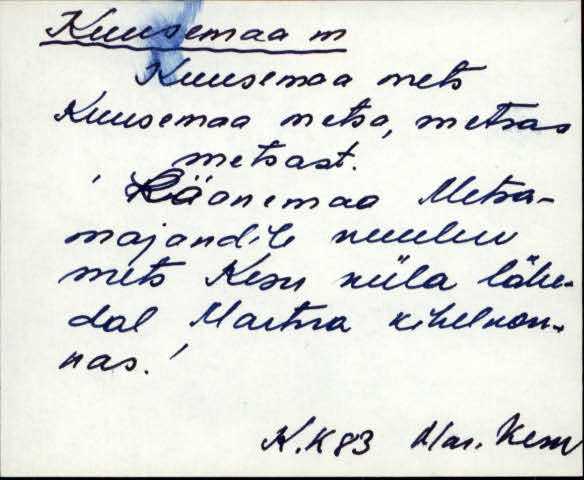 Kuusemaa m
Kuusemaa mets
Kuusemaa metsa, metsas
metsast.
' Läänemaa Metsa-
majandile kuuluv
mets Kesu küla lähe-
dal Martna kihelkon-
nas.'
K.K 83 Mar. Kesu